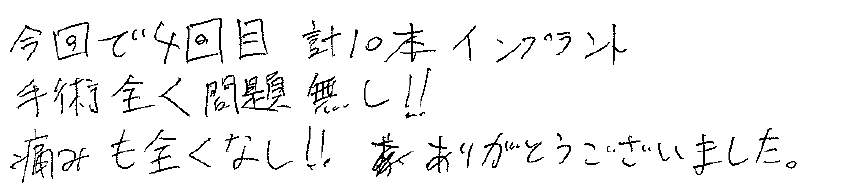 今回で4回目 計10本 インプラント
手術全く問題無し!!
痛みも全くなし!! ありがとうございました。